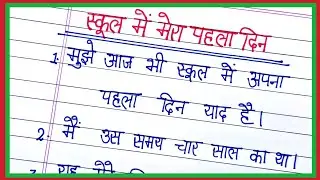 स्कूल में मेरा पहला दिन
1. मुझे आज भी स्कूल में अपना
पहला दिन याद है।
2. मैं उस समय चार साल का था।